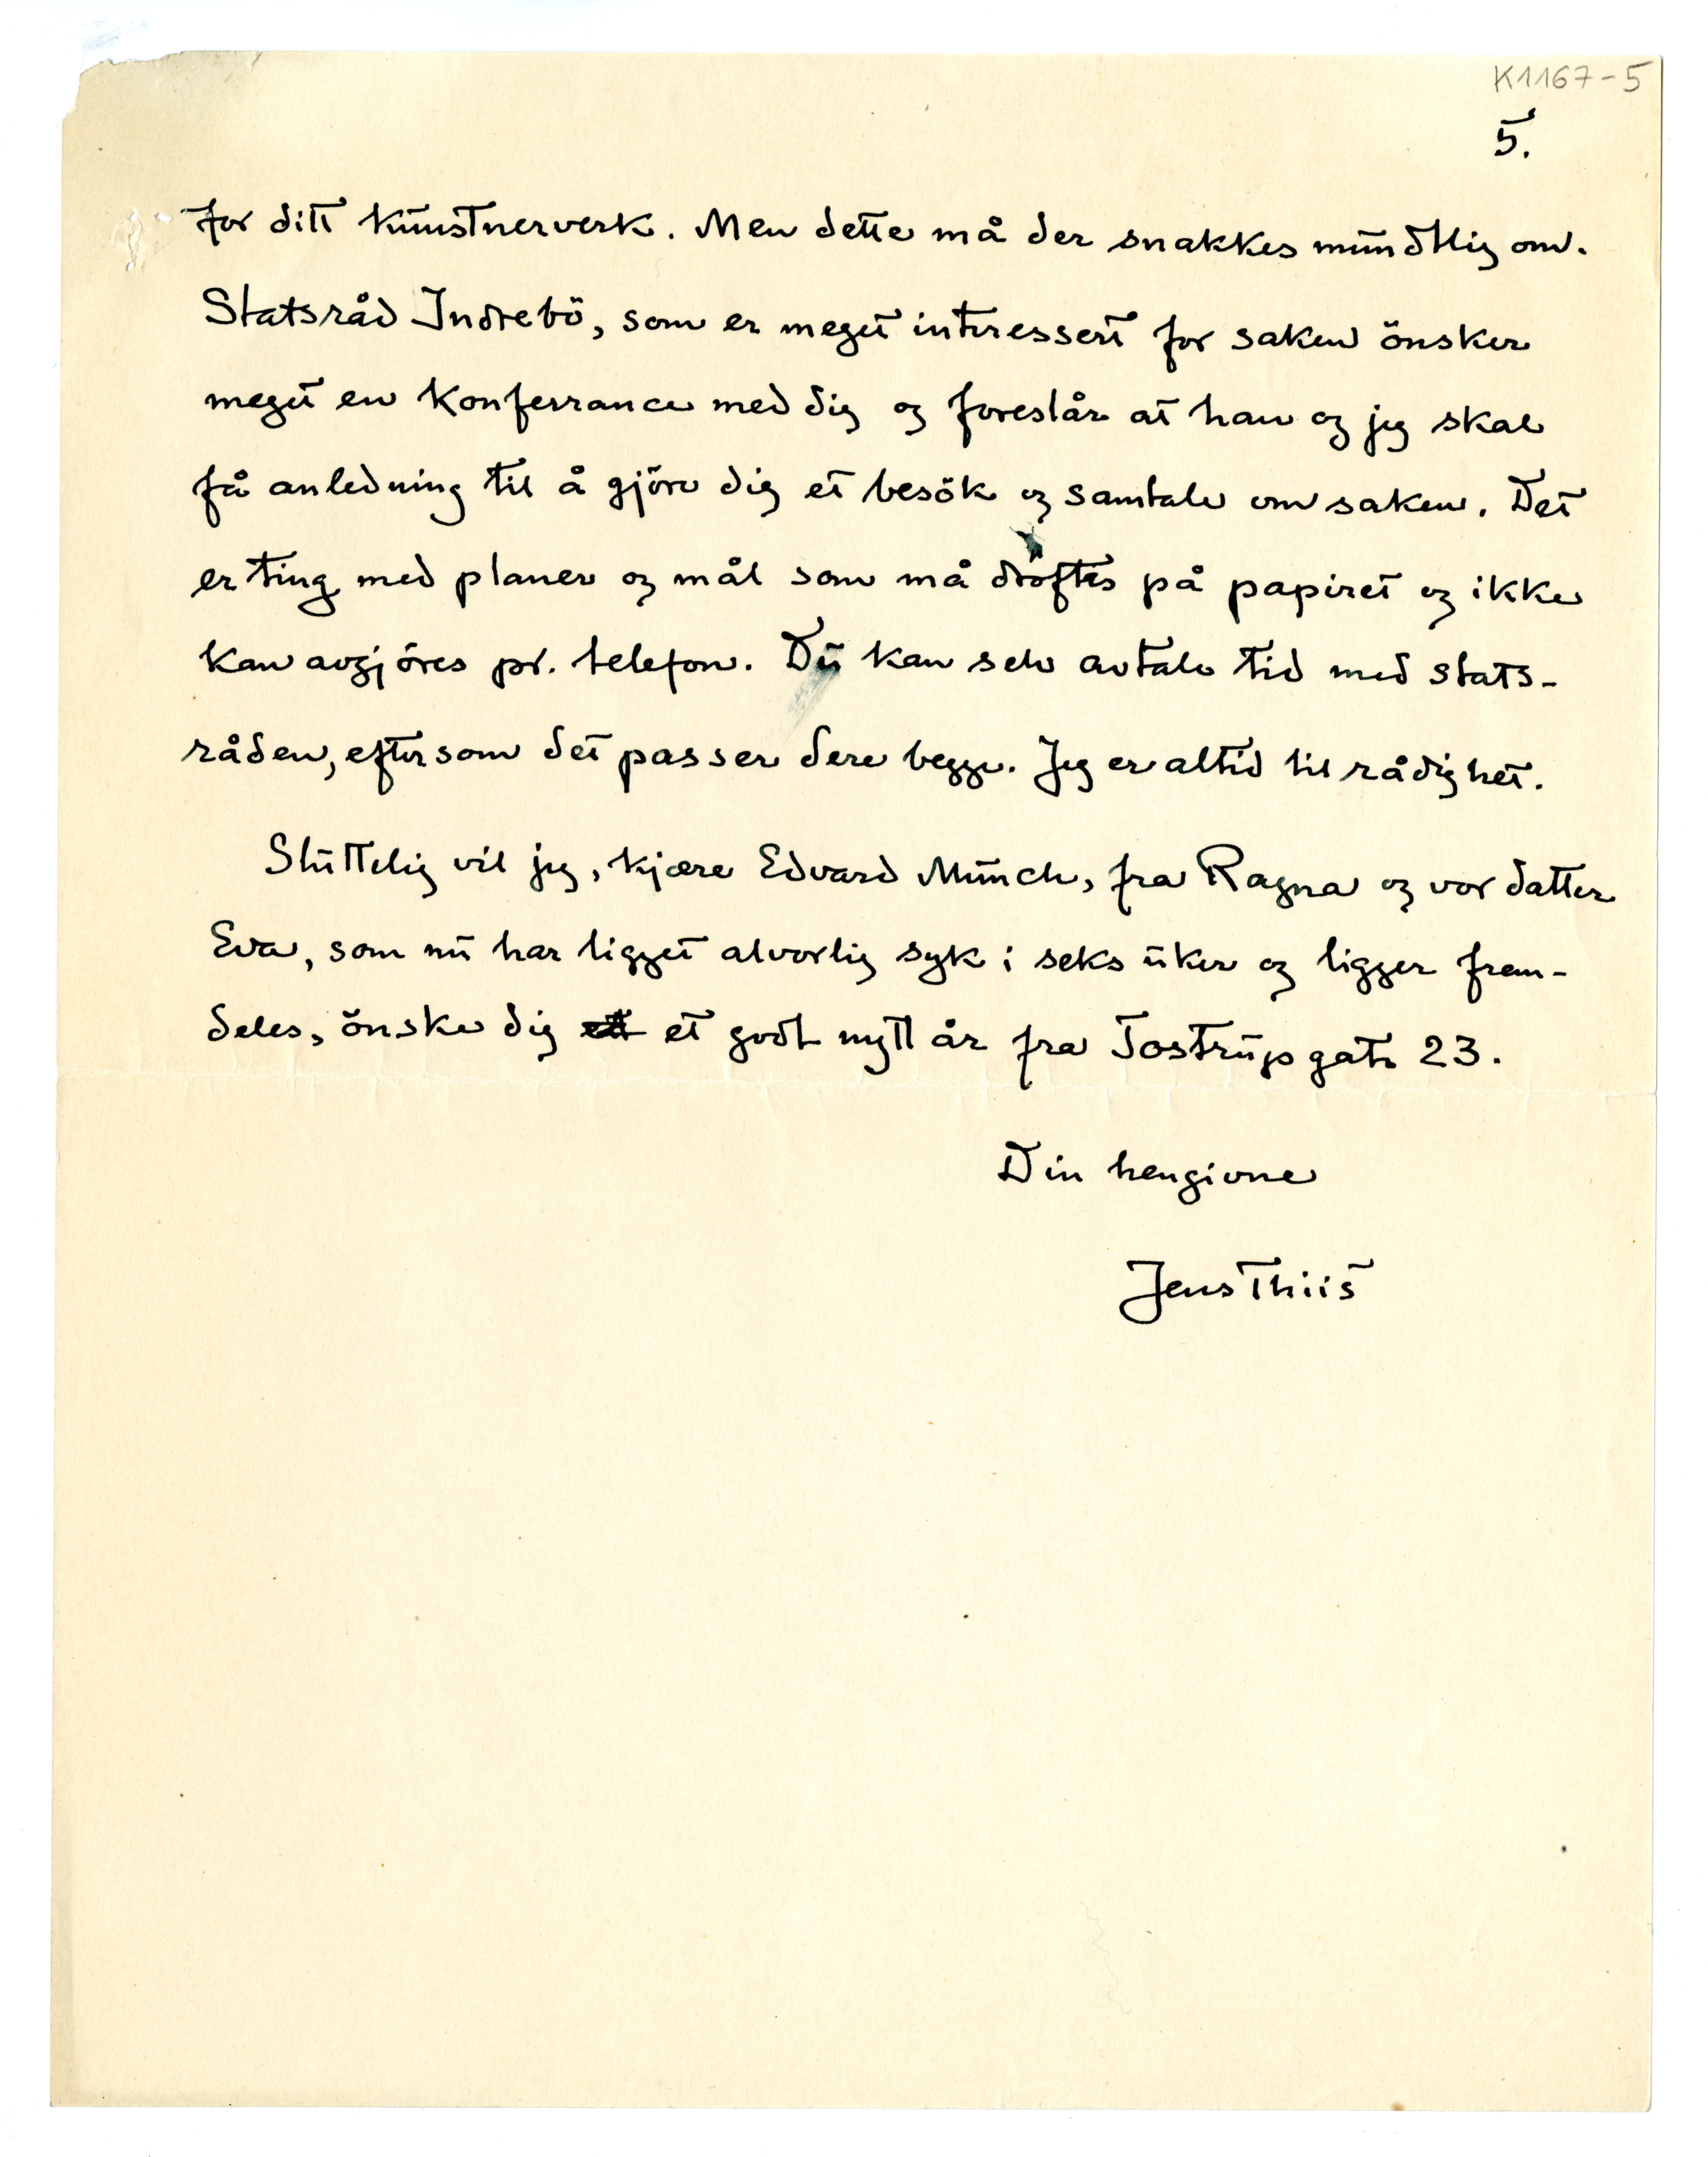 K1167-5
5.
for ditt kunstnerverk. Men dette må der snakkes mundtlig om.
Statsråd Indrebö, som er meget interessert for saken önsker
meget en konferrance med dig og foreslår at han og jeg skal
få anledning til å gjöre dig et besök og samtale om saken. Det
er ting med planer og mål som må dröftes på papiret og ikke
kan avgjöres pr. telefon. Du kan selv avtale tid med stats-
råden, eftersom det passer dere begge. Jeg er altid til rådighet.
Sluttelig vil jeg, kjære Edvard Munch, fra Ragna og vor datter
Eva, som nu har ligget alvorlig syk i seks uker og ligger frem-
deles, önske dig ett et godt nytt år fra Tostrupgate 23.
Din hengivne
Jens Thiis